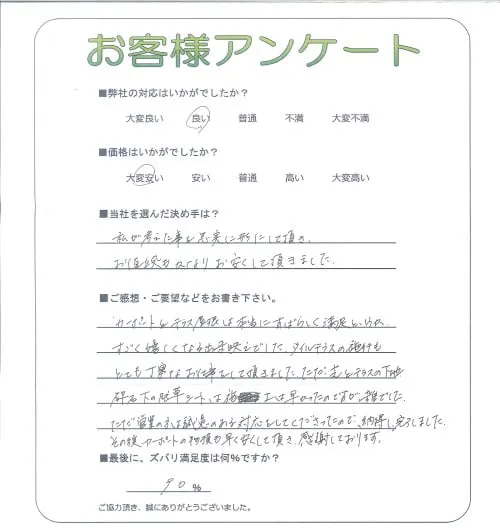 お客様アンケート
■弊社の対応はいかがでしたか？
大変良い 良い 普通 不満 大変不満
■価格はいかがでしたか？
大変安い 安い 普通 高い 大変高い
■当社を選んだ決め手は？
私が考えた事を忠実に形にして頂き、
お値段も よりお安くして頂きました。
■ご感想・ご要望などをお書き下さい。
カーポートとテラス屋根は本当にすばらしく満足というか、
すごく嬉しくなる出来映えでした。タイルテラスの施行も
とても丁寧なお仕事をして頂きました。ただ、 とテラスの下地
砕石下の防草シートは 早かったのですが雑でした。
ただ営業の は誠意のある対応をしてくださったので、納得し完了しました。
その後カーポートの も早く安くして頂き感謝しております。
■最後に、ズバリ満足度は何%ですか？
90 %
ご協力頂き、誠にありがとうございました。